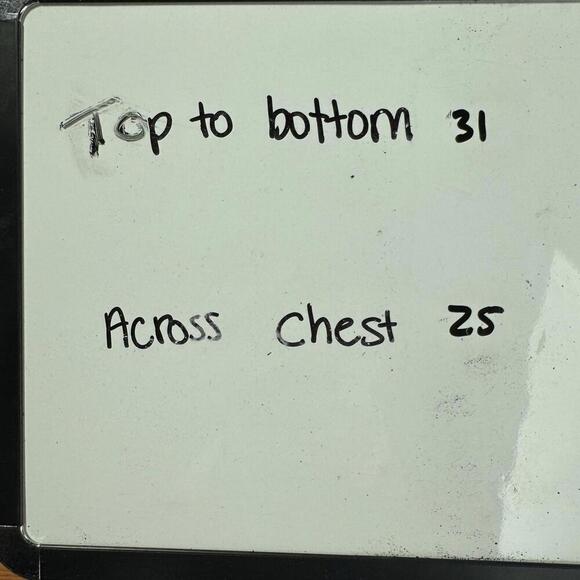 Top to bottom 31
Across Chest 25